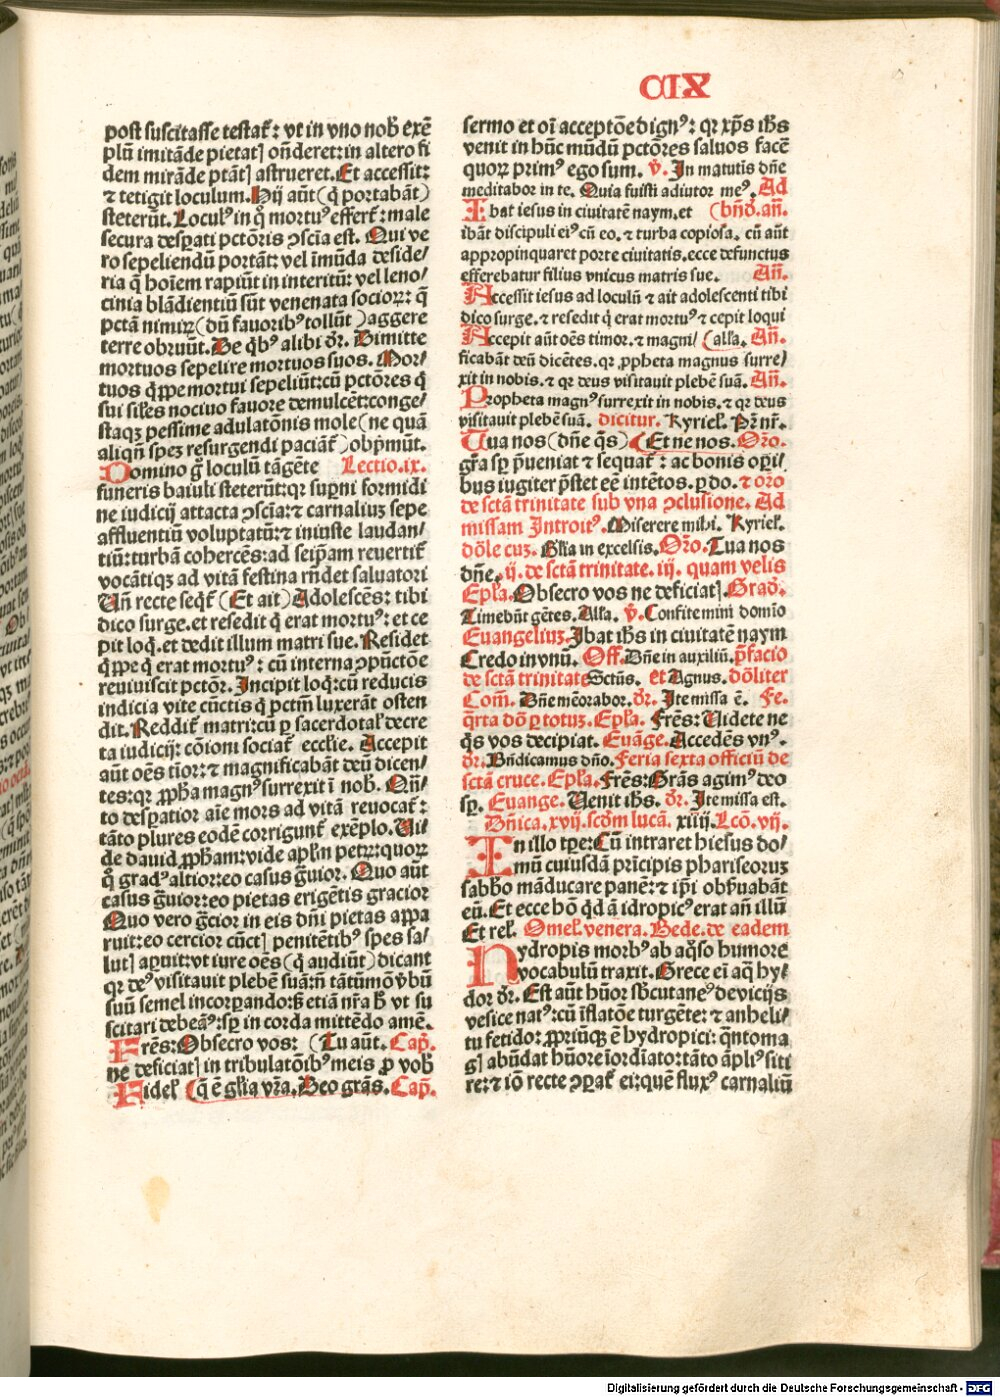 CIX
post suscitasse testat᷑: vt in vno nob̄ exē
plū imitāde pietatꝭ on̄deret: in altero fi
dem mirāde ptātꝭ astrueret. Et accessit:
⁊ tetigit loculum. Hij aūt (q̇ portabāt)
steterūt. Loculꝰ in q̊ mortuꝰ effert᷑: male
secura desꝑati pctōris ꝯsciā est. Qui ve
ro sepeliendū portāt: vel īmūda deside/
ria q̄ hoīem rapiūt in interitū: vel leno/
cinia blādientiū sūt venenata socioꝝ: q̄
pctā nimiꝝ (dū fauoribꝰ tollūt) aggere
terre obruūt. De q̇bꝰ alibi dr̄. Dimitte
mortuos sepelire mortuos suos. Mor/
tuos q̇ppe mortui sepeliūt: cū pctōres q̇
sui sil̄es nociuo fauore demulcēt: conge/
staqꝫ pessime adulatōnis mole (ne quā
aliqn̄ speꝫ resurgendi paciāt᷑) obp̄mūt.
Domino g̊ loculū tāgēte Lectio.ix.
funeris baiuli steterūt: qꝛ suꝑni formidi
ne iudicij attacta ꝯsciā: ⁊ carnaliū sepe
affluentiū voluptatū: ⁊ iniuste laudan/
tiū: turbā cohercēs: ad seip̄am reuertit᷑
vocātiqꝫ ad vitā festina rn̄det saluatori
Vn̄ recte seqt᷑ (Et ait) Adolescēs: tibi
dico surge. et resedit q̇ erat mortuꝰ: et ce
pit loq̇. et dedit illum matri sue. Residet
q̇ppe q̇ erat mortuꝰ: cū interna ꝯpūctōe
reuiuiscit pctōr. Incipit loq̇: cū reducis
indicia vite cūctis q̇ pctm̄ luxerāt osten
dit. Reddit᷑ matri: cū ꝑ sacerdotal̄ decre
ta iudicij: cōīoni sociat᷑ eccl̄ie. Accepit
aūt oēs tīor: ⁊ magnificabāt deū dicen/
tes: qꝛ ꝓph̄a magnꝰ surrexit ī nob̄. Qn̄/
to desꝑatior aīe mors ad vitā reuocat᷑:
tāto plures eodē corrigunt᷑ exēplo. Vi/
de dauid ꝓph̄am: vide apl̄m petꝝ: quoꝝ
q̊ gradꝰ altior: eo casus g̊uior. Quo aūt
casus g̊uior: eo pietas erigētis gracior
Quo vero g̊cior in eis dn̄i pietas appa
ruit: eo cercior cūctꝭ penitētibꝰ spes sa/
lutꝭ aꝑuit: vt iure oēs (q̇ audiūt) dicant
qꝛ deꝰ visitauit plebē suā: n̄ tātūmō v̄bū
suū semel incorpando: sꝫ etiā nr̄a h̄ vt su
scitari debeāꝰ: sp̄ in corda mittēdo amē.
Frēs: Obsecro vos: (Tu aūt. Cap̄.
ne deficiatꝭ in tribulatōibꝰ meis ꝑ vob̄
Fidel̄ (q̄ ē gl̄ia vr̄a. Deo grās. Cap̄.
sermo et oī acceptōe dignꝰ: qꝛ xp̄s ih̄s
venit in hūc mūdū pctōres saluos facē
quoꝝ primꝰ ego sum. v̄. In matutis dn̄e
meditabor in te. Quia fuisti adiutor meꝰ. Ad
Ibat iesus in ciuitatē naym. et (bn̄d. an̄.
ibāt discipuli eiꝰ cū eo. ⁊ turba copiosa. cū aūt
appropinquaret porte ciuitatis. ecce defunctus
efferebatur filius vnicus matris sue. An̄.
Accessit iesus ad loculū ⁊ ait adolescenti tibi
dico surge. ⁊ resedit q̇ erat mortuꝰ ⁊ cepit loqui
Accepit aūt oēs timor. ⁊ magni/ (alla. An̄.
ficabāt deū dicētes. qꝛ ꝓpheta magnus surre/
xit in nobis. ⁊ qꝛ deus visitauit plebē suā. An̄.
Propheta magnꝰ surrexit in nobis. ⁊ qꝛ deus
visitauit plebē suā. dicitur. Kyriel̄. Pr̄ nr̄.
Tua nos (dn̄e q̄s) (Et ne nos. Oro.
gr̄a sꝑ p̄ueniat ⁊ sequat᷑: ac bonis oꝑi/
bus iugiter p̄stet eē intētos. ꝑ do. ⁊ oro
de sctā trinitate sub vna ꝯclusione. Ad
missam Introitꝰ. Miserere mihi. Kyriel̄.
dōle cuꝫ. Gl̄ia in excelsis. Oro. Tua nos
dn̄e. ij. de sctā trinitate. iij. quam velis
Epl̄a. Obsecro vos ne deficiatꝭ. Grad.
Timebūt gētes. Alla. v̄. Confitemini domīo
Euangeliuꝫ. Ibat ih̄s in ciuitatē naym
Credo in vnū. Off. Dn̄e in auxiliū. p̄facio
de sctā trinitate Sctūs. et Agnus. dōliter
Com̄. Dn̄e mēorabor. dr̄. Ite missa ē. Fe.
q̄rta dō ꝑ totuꝫ. Epl̄a. Frēs: Videte ne
q̇s vos decipiat. Euāge. Accedēs vnꝰ.
dr̄. Bn̄dicamus dn̄o. Feria sexta officiū de
sctā cruce. Epl̄a. Frēs: Grās agimꝰ deo
sꝑ. Euange. Venit ih̄s. dr̄. Ite missa est.
Dn̄ica. xvij. scd̄m lucā. xiiij. Lcō. vij.
In illo tꝑe: Cū intraret hiesus do/
mū cuiusdā prīcipis phariseoruꝫ
sabb̄o māducare panē: ⁊ ip̄i obẜuabāt
eū. Et ecce hō qd̄ā idropicꝰ erat an̄ illū
Et rel̄. Omel̄. venera. Bede. de eadem
Hydropis morbꝰ ab aq̄so humore
vocabulū traxit. Grece eī aq̄ hy/
dor dr̄. Est aūt hūor sb̄cutaneꝰ de vicijs
vesice natꝰ: cū īflatōe turgēte: ⁊ anheli/
tu fetido: ꝓpriūqꝫ ē hydropici: q̄ntoma
gꝭ abūdat hūore īordīato: tāto āpliꝰ siti
re: ⁊ iō recte ꝯꝑat᷑ ei: quē fluxꝰ carnaliū
Digitalisierung gefördert durch die Deutsche Forschungsgemeinschaft - DFG